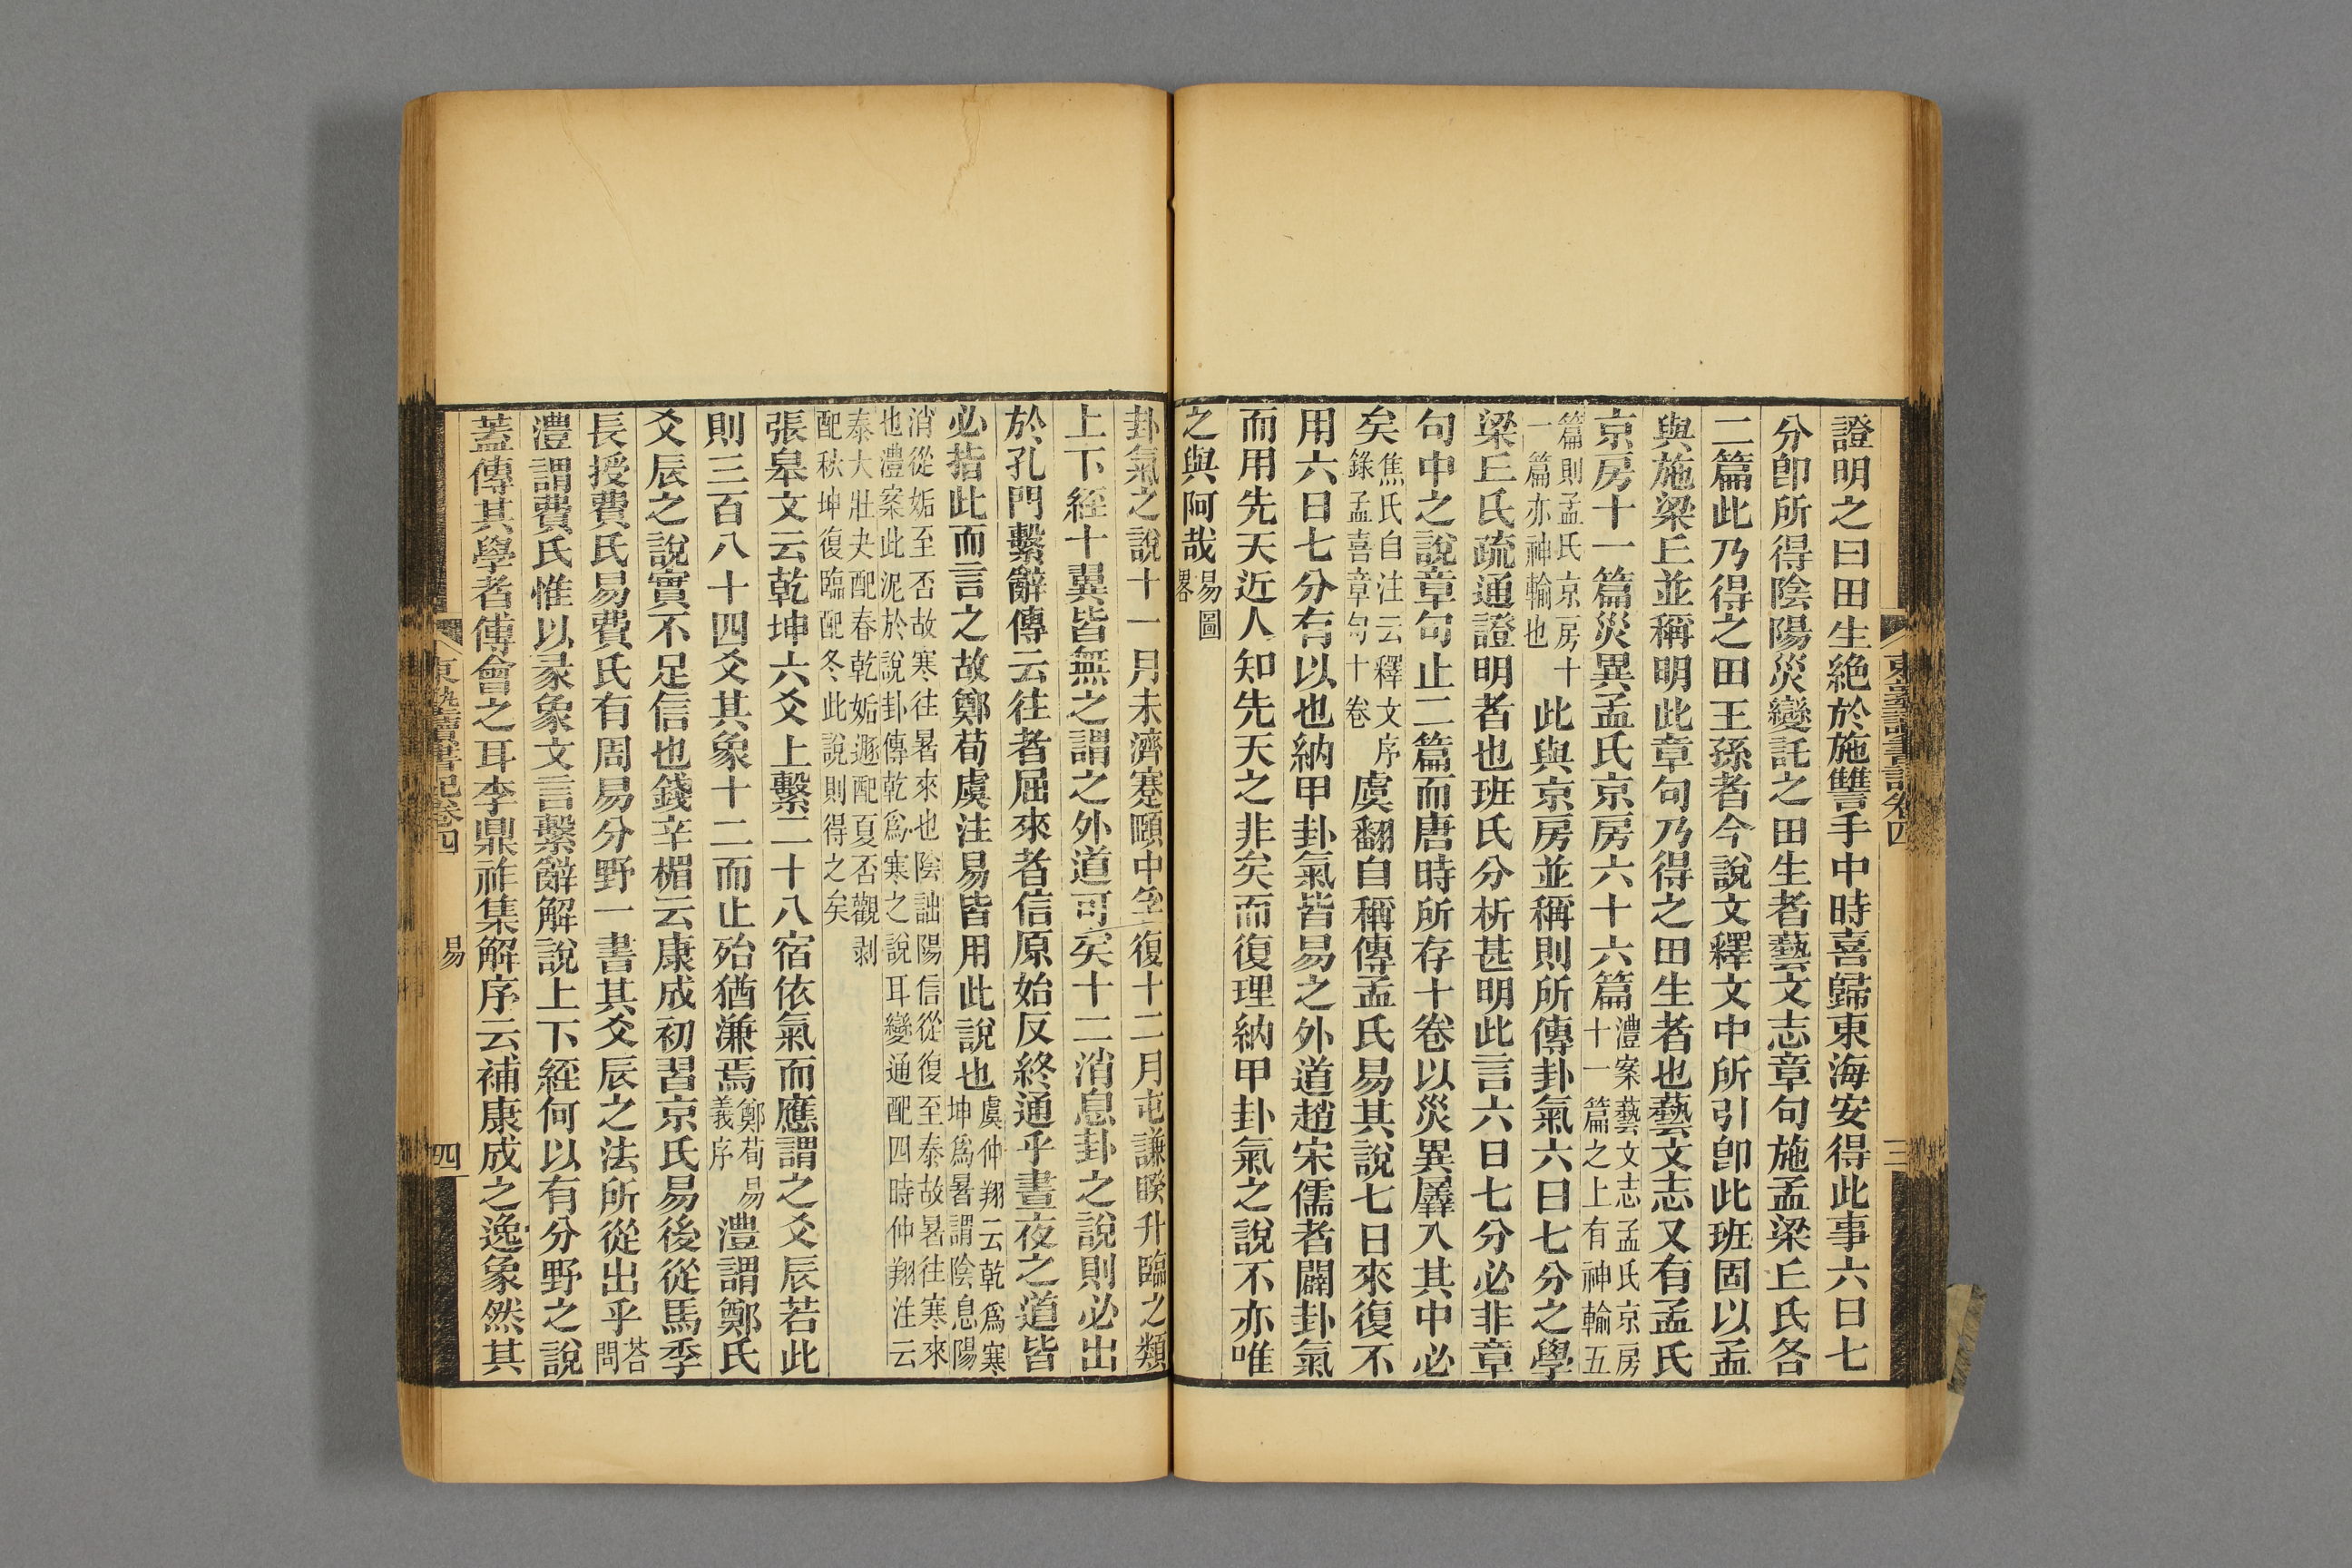 證明之曰田生絶於施讐手中時喜歸東海安得此事六日七
分卽所得陰陽災變託之田生者藝文志章句施孟梁丘氏各
二篇此乃得之田王孫者今說文釋文中所引卽此班固以孟
與施梁丘並稱明此章句乃得之田生者也藝文志又有孟氏
京房十一篇災異孟氏京房六十六篇澧案藝文志孟氏京房十一篇之上有神輸五
篇則孟氏京房十一篇亦神輸也此與京房並稱則所傳卦氣六日七分之學
梁丘氏疏通證明者也班氏分析甚明此言六日七分必非章
句中之說章句止二篇而唐時所存十卷以災異羼入其中必
矣焦氏自注云釋文序錄孟喜章句十卷虞翻自稱傳孟氏易其說七日來復不
用六日七分有以也納甲卦氣皆易之外道趙宋儒者闢卦氣
而用先天近人知先天之非矣而復理納甲卦氣之說不亦唯
之與阿哉易圖畧
東塾讀書記卷四
三
卦氣之說十一月未濟蹇頤中孚復十二月屯謙睽升臨之類
上下經十翼皆無之謂之外道可矣十二消息卦之說則必出
於孔門繫辭傳云往者屈來者信原始反終通乎晝夜之道皆
必指此而言之故鄭荀虞注易皆用此說也虞仲翔云乾爲寒坤爲暑謂陰息陽
消從姤至否故寒往暑來也陰詘陽信從復至泰故暑往寒來也澧案此泥於說卦傳乾爲寒之說耳變通配四時仲翔注云
泰大壯夬配春乾姤遯配夏否觀剥配秋坤復臨配冬此說則得之矣
張皋文云乾坤六爻上繫二十八宿依氣而應謂之爻辰若此
則三百八十四爻其象十二而止殆猶溓焉鄭荀易義序澧謂鄭氏
爻辰之說實不足信也錢辛楣云康成初習京氏易後從馬季
長授費氏易費氏有周易分野一書其爻辰之法所從出乎荅問
澧謂費氏惟以彖象文言繫辭解說上下經何以有分野之說
蓋傳其學者傅會之耳李鼎祚集解序云補康成之逸象然其
東塾讀書記卷四
易
四